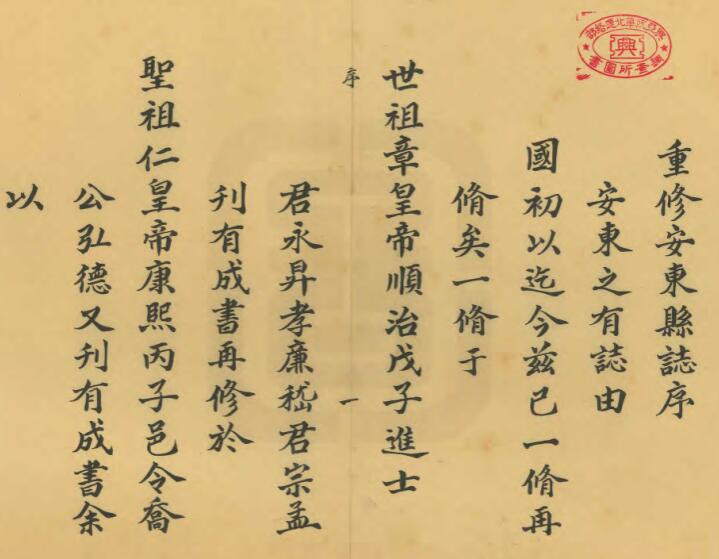 重修安東縣誌序
安東之有誌由
國初以迄今茲已一脩再
脩矣一脩于
世祖章皇帝順治戊子進士
序
一
君永昇孝廉嵇君宗孟
刊有成書再修於
聖祖仁皇帝康熙丙子邑令喬
公弘德又刊有成書余
以
興